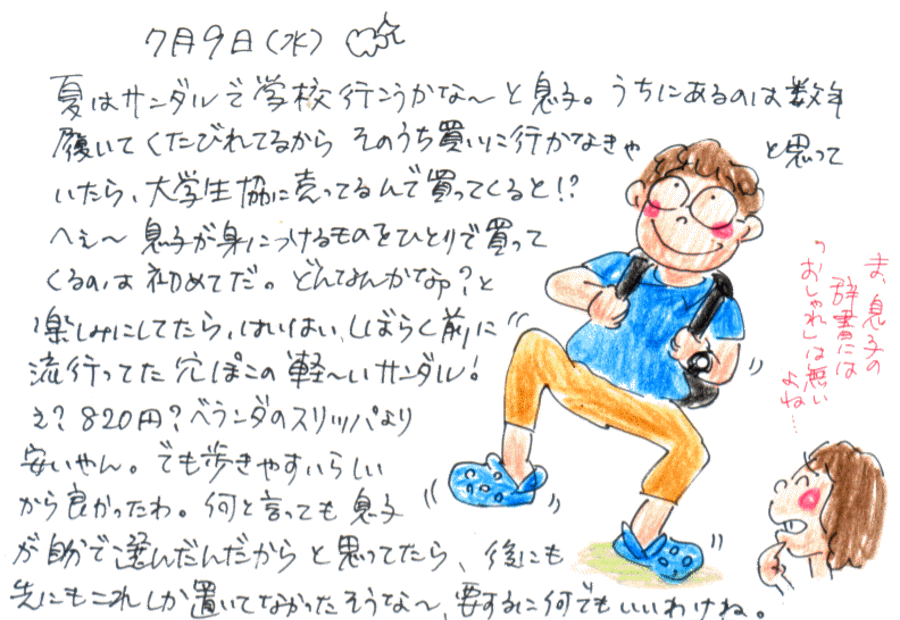 7月9日(水)
夏はサンダルで学校行こうかな〜と息子。うちにあるのは数年
履いてくたびれてるから そのうち買いに行かなきゃ と思って
いたら、大学生協に売ってるんで買ってくると!?
へぇ〜 息子が身につけるものをひとりで買って
くるのは初めてだ。どんなんかなぁ?と
楽しみにしてたら、はいはい、しばらく前に
流行ってた穴ぽこの軽〜いサンダル!
え?820円?ベランダのスリッパより
安いやん。でも歩きやすいらしい
から良かったわ。何と言っても息子
が自分で選んだんだからと思ってたら、後にも
先にもこれしか置いてなかったそうな〜、要するに何でもいいわけね。
ま、息子の
辞書には
「おしゃれ」は無い
よね…